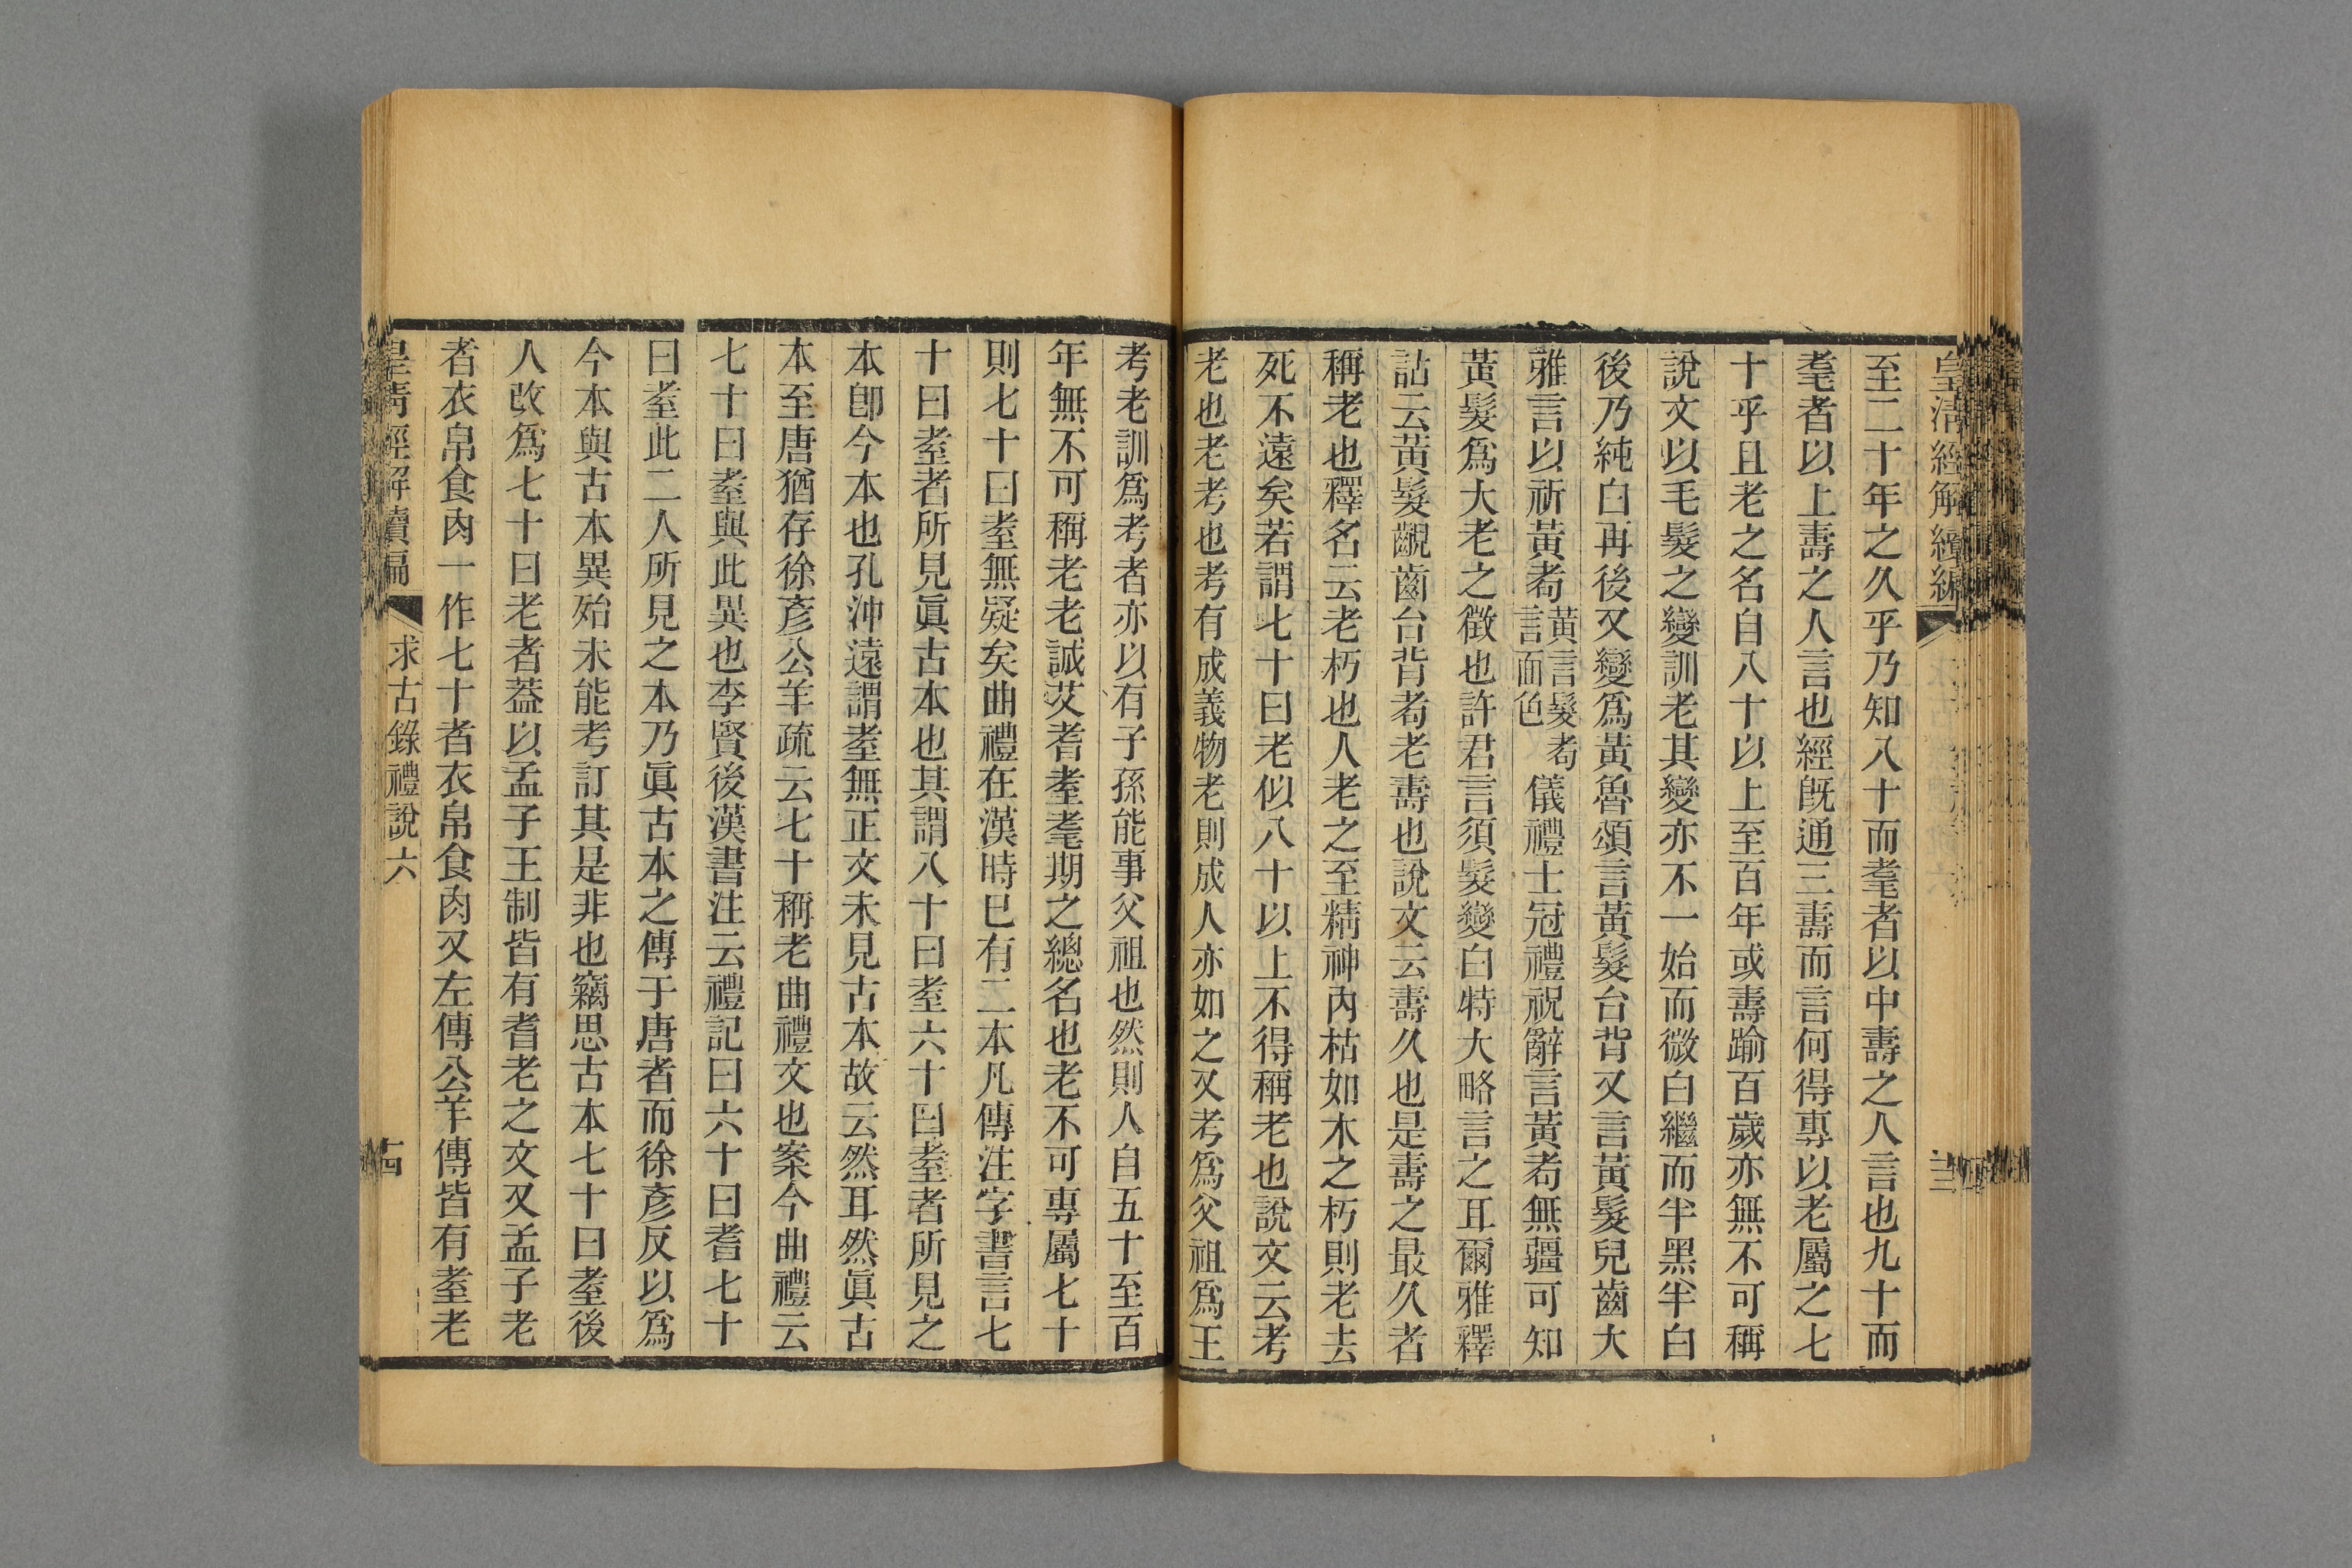 皇清經解續編
三
至二十年之久乎乃知八十而耄者以中壽之人言也九十而
耄者以上壽之人言也經旣通三壽而言何得專以老屬之七
十乎且老之名自八十以上至百年或壽踰百歲亦無不可稱
說文以毛髮之變訓老其變亦不一始而微白繼而半黑半白
後乃純白再後又變爲黃魯頌言黃髮台背又言黃髮兒齒大
雅言以祈黃耇黃言髮耇言面色儀禮士冠禮祝辭言黃耇無疆可知
黃髮爲大老之徵也許君言須髮變白特大略言之耳爾雅釋
詁云黃髮齯齒台背耇老壽也說文云壽久也是壽之最久者
稱老也釋名云老朽也人老之至精神內枯如木之朽則老去
死不遠矣若謂七十曰老似八十以上不得稱老也說文云考
老也老考也考有成義物老則成人亦如之又考爲父祖爲王
考老訓爲考者亦以有子孫能事父祖也然則人自五十至百
年無不可稱老老誠艾耆耋耄期之總名也老不可專屬七十
則七十曰耋無疑矣曲禮在漢時已有二本凡傳注字書言七
十曰耋者所見眞古本也其謂八十曰耋六十曰耋者所見之
本卽今本也孔沖遠謂耋無正文未見古本故云然耳然眞古
本至唐猶存徐彥公羊疏云七十稱老曲禮文也案今曲禮云
七十曰耋與此異也李賢後漢書注云禮記曰六十曰耆七十
曰耋此二人所見之本乃眞古本之傳于唐者而徐彥反以爲
今本與古本異殆未能考訂其是非也竊思古本七十曰耋後
人改爲七十曰老者蓋以孟子王制皆有耆老之文又孟子老
者衣帛食肉一作七十者衣帛食肉又左傳公羊傳皆有耋老
皇淸經解續編
求古錄禮說六
古